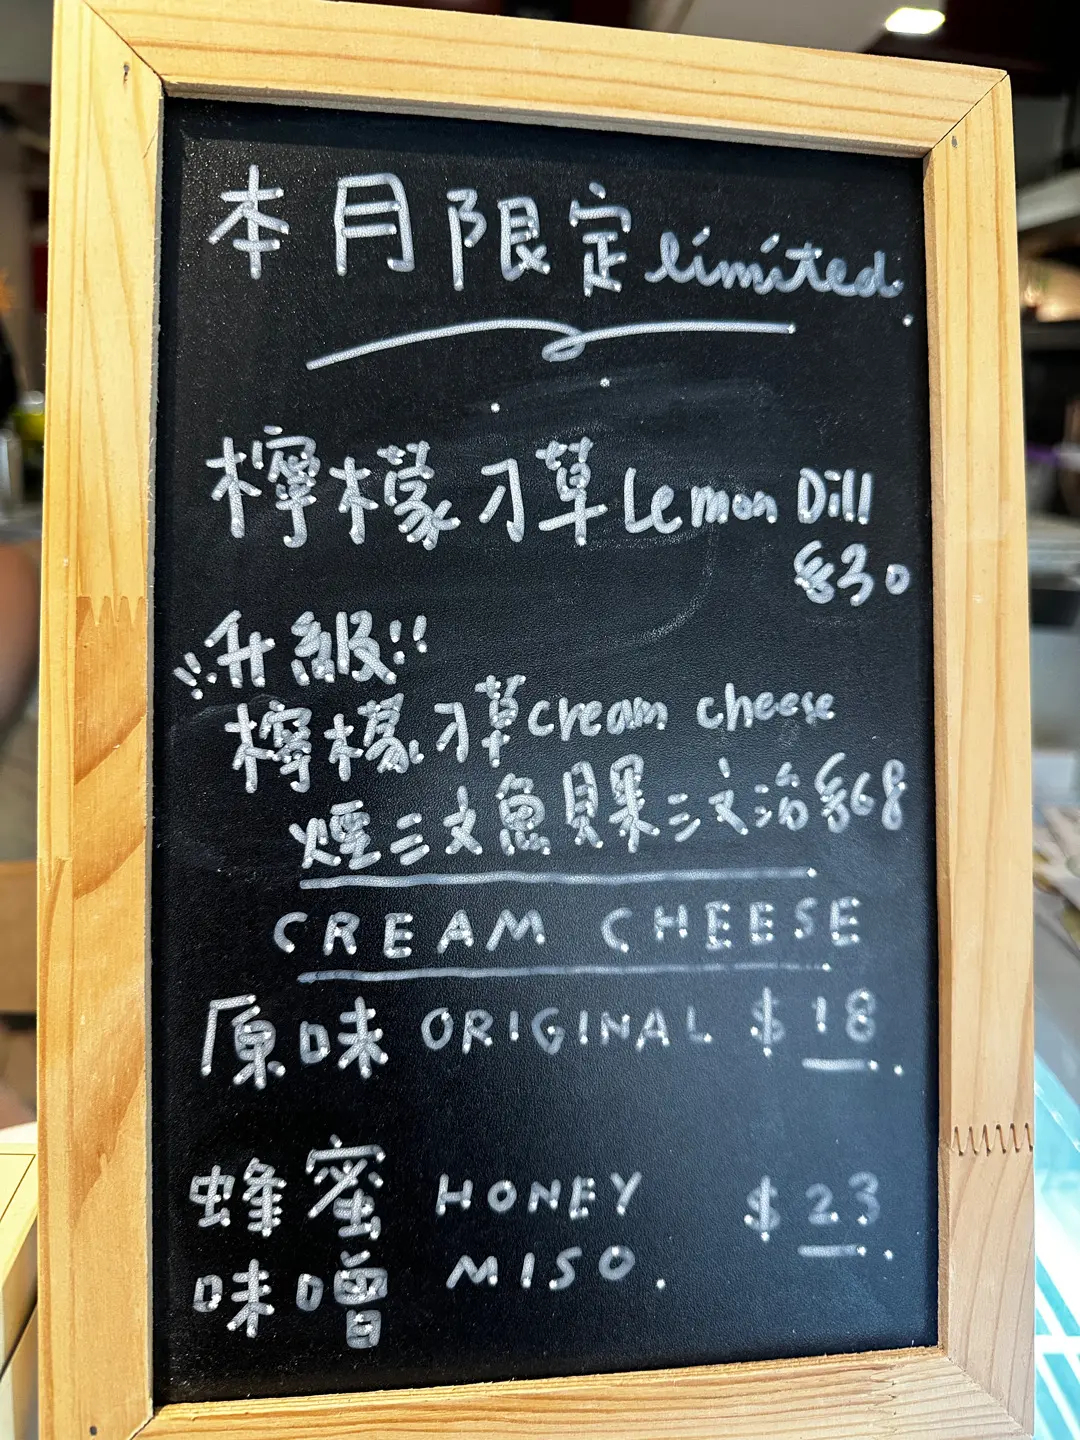 本月限定 limited
檸檬刁草 Lemon Dill
$30
!!升級!!
檸檬刁草 cream cheese
煙三文魚貝果三文治 $68
CREAM CHEESE
原味 ORIGINAL $18
蜂蜜 HONEY $23
味噌 MISO.